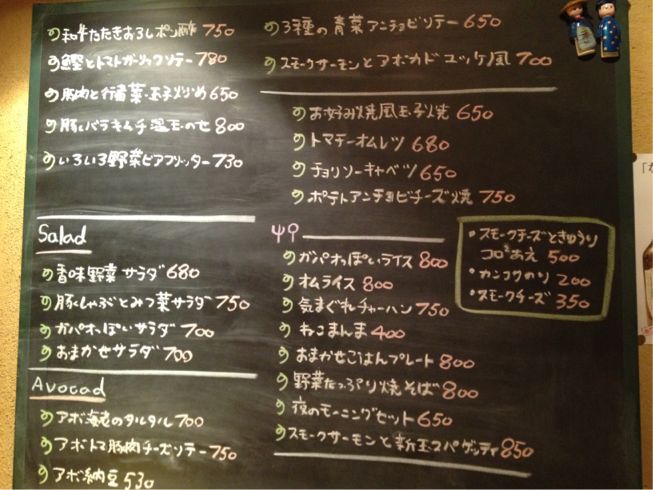 和牛たたきおろしポン酢 750
鰹とトマトガーリックソテー 780
豚肉と青菜玉子炒め 650
豚バラキムチ温玉のせ 800
いろいろ野菜ビアフリッター 730
Salad
香味野菜サラダ 680
豚しゃぶとみつ葉サラダ 750
ガパオっぽいサラダ 700
おまかせサラダ 700
Avocad
アボ海老のタルタル 700
アボトマ豚肉チーズソテー 750
アボ納豆 530
3種の青菜アンチョビソテー 650
スモークサーモンとアボカドユッケ風 700
お好み焼風玉子焼 650
トマチーオムレツ 680
チョリソーキャベツ 650
ポテトアンチョビチーズ焼 750
ガパオっぽいライス 800
オムライス 800
気まぐれチャーハン 750
ねこまんま 400
おまかせごはんプレート 800
野菜たっぷり焼そば 800
夜のモーニングセット 650
スモークサーモンと新玉スパゲッティ 850
・スモークチーズときゅうり
コロコロあえ 500
・カンコクのり 200
・スモークチーズ 350